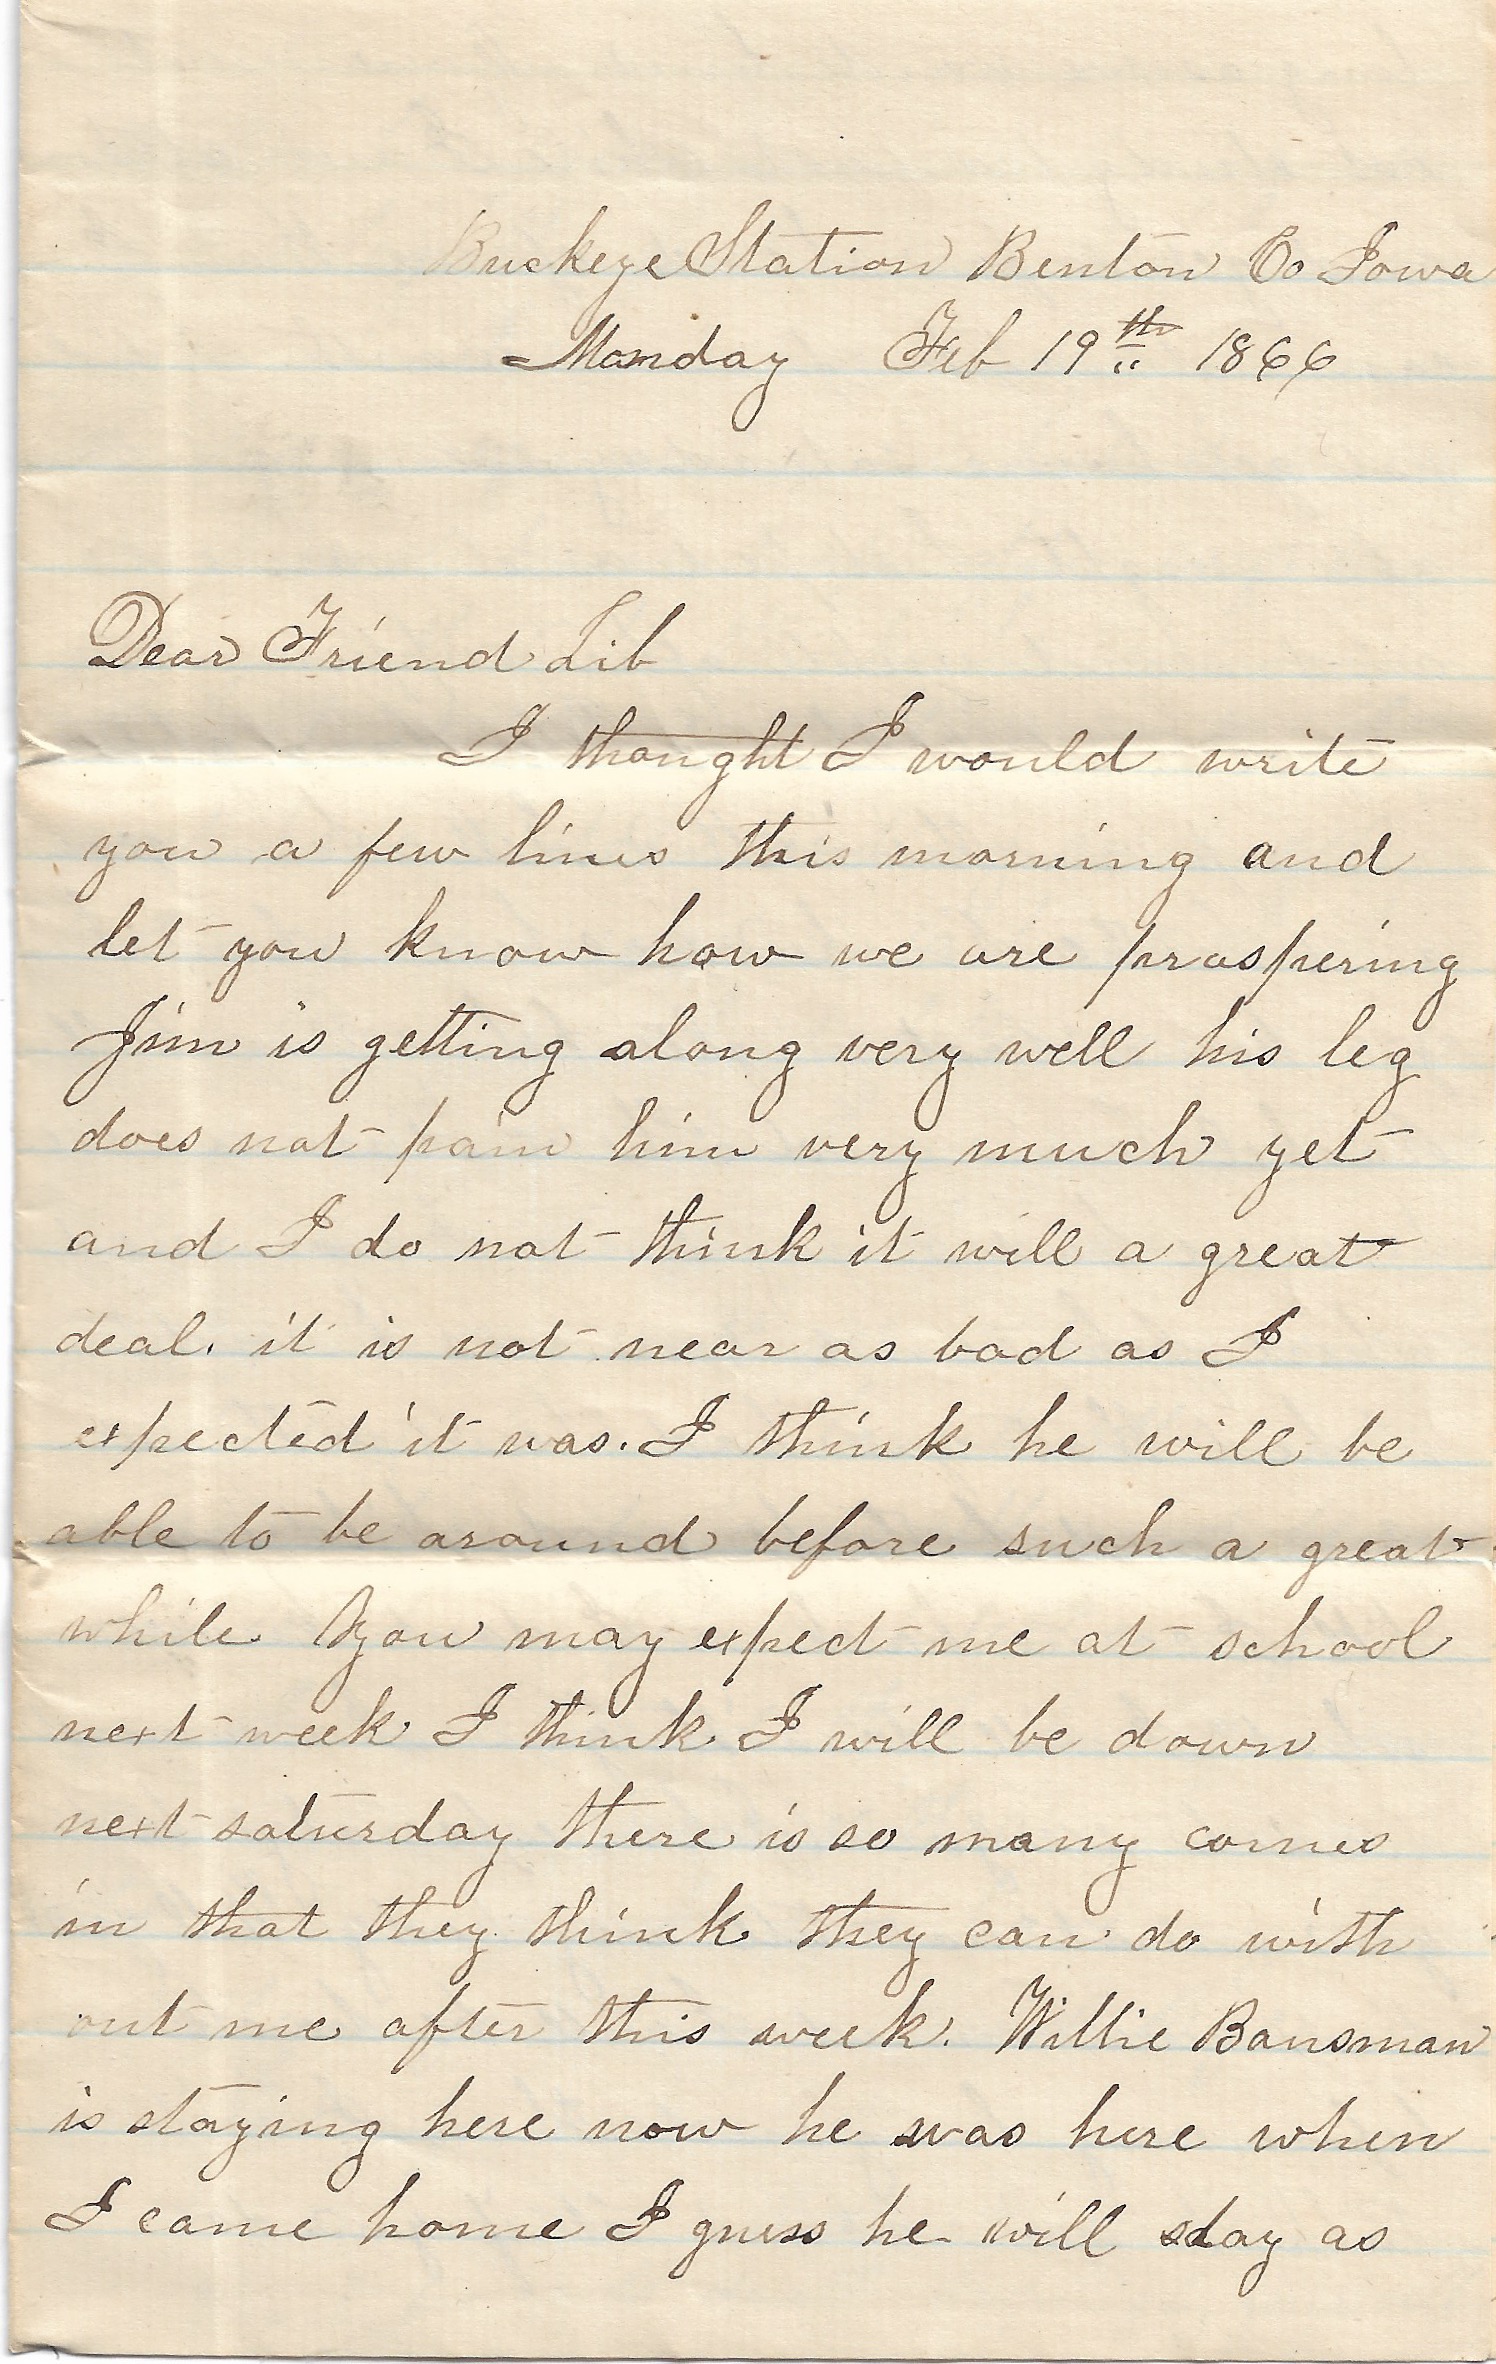 Buckeye Station Benton Co Iowa
Monday Feb 19th 1866
Dear Friend Lib
I thought I would write
you a few lines this morning and
let you know how we are prospering
Jim is getting along very well his leg
does not pain him very much yet
and I do not think it will a great
deal. it is not near as bad as I
expected it was. I think he will be
able to be around before such a great
while. You may expect me at school
next week I think I will be down
next saturday there is so many comes
in that they think they can do with
out me after this week. Willie Bausman
is staying here now he was here when
I came home I guess he will stay as